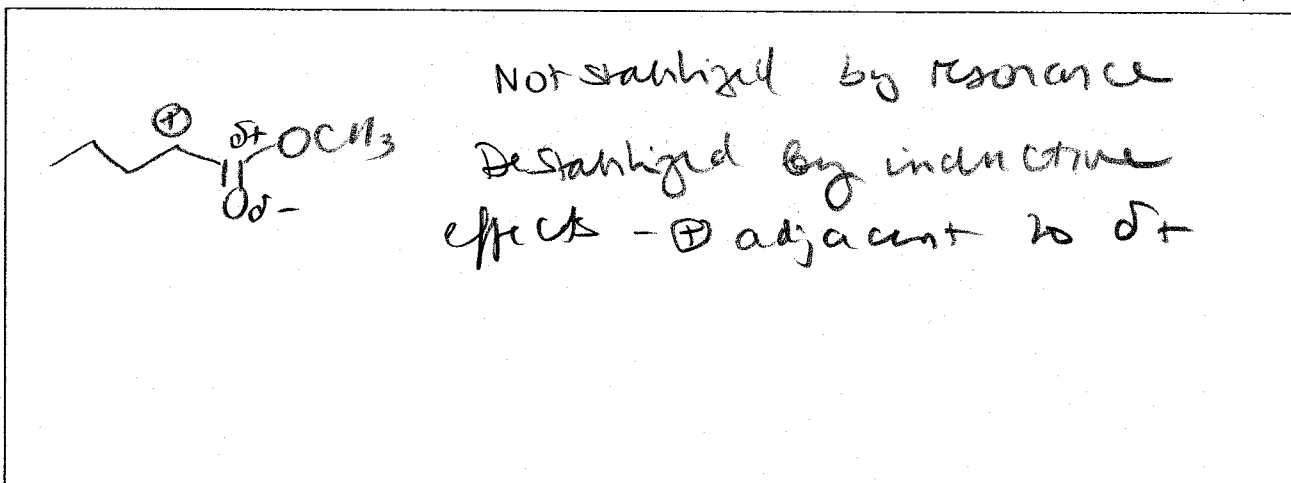 Not stabilized by resonance
⊕ δ+ OCH3
Destabilized by inductive
O δ-
effects - ⊕ adjacent to δ+